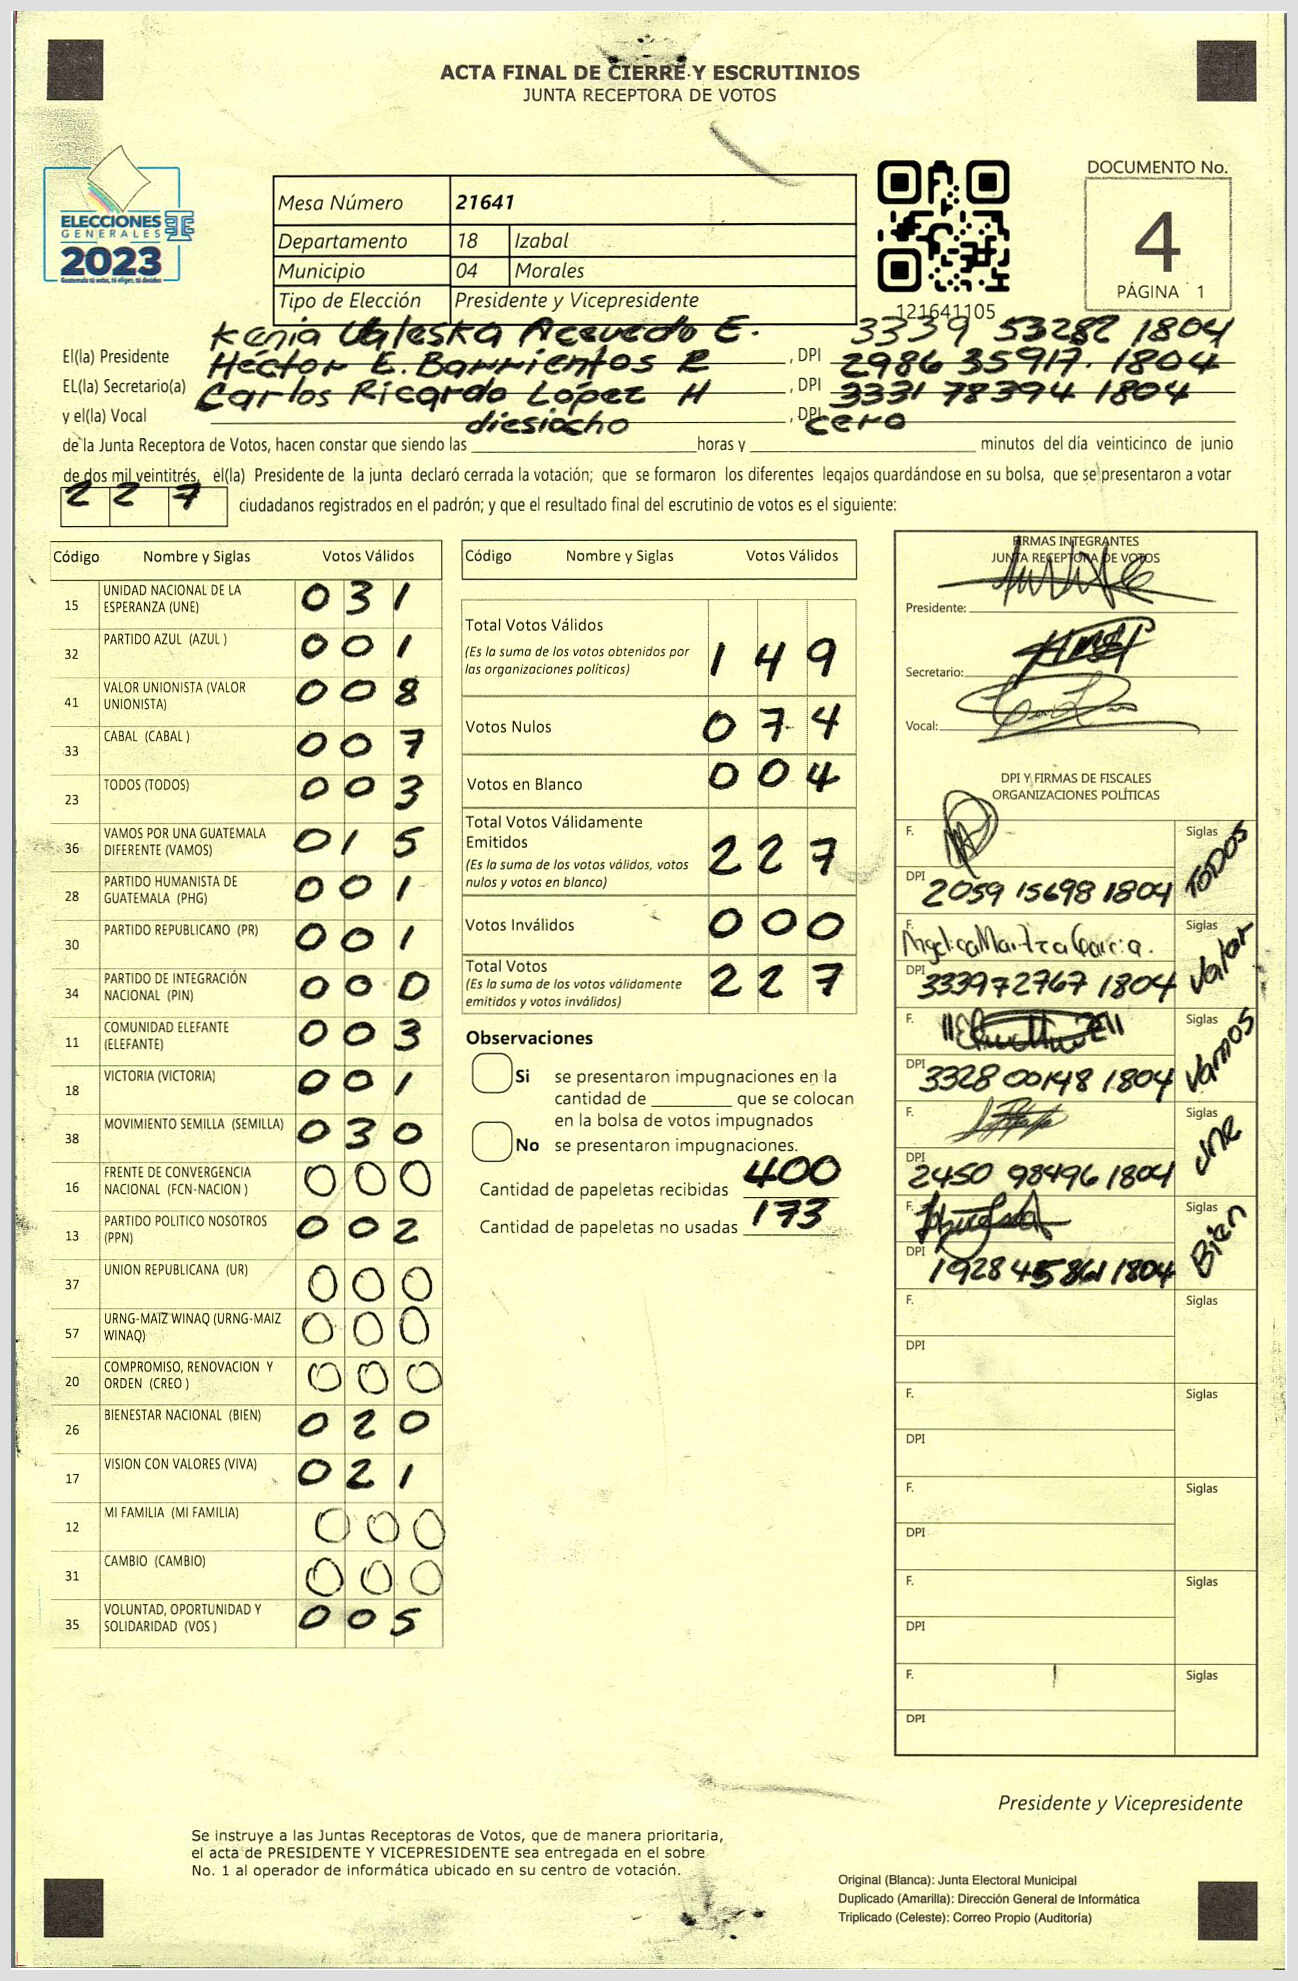 ACTA FINAL DE CIERRE Y ESCRUTINIOS
JUNTA RECEPTORA DE VOTOS
ELECCIONES
GENERALES
2023
Guatemala tú votas, tú eliges, tú decides
Mesa Número 21641
Departamento 18 Izabal
Municipio 04 Morales
Tipo de Elección Presidente y Vicepresidente
121641105
DOCUMENTO No.
4
PÁGINA 1
Kenia Valeska Acevedo E. 3339 53282 1804
El(la) Presidente Héctor E. Barrientos R , DPI 2986 35917 1804
EL(la) Secretario(a) Carlos Ricardo López H , DPI 3331 78394 1804
y el(la) Vocal , DPI
diesiocho cero
de la Junta Receptora de Votos, hacen constar que siendo las horas y minutos del día veinticinco de junio
de dos mil veintitrés, el(la) Presidente de la junta declaró cerrada la votación; que se formaron los diferentes legajos guardándose en su bolsa, que se presentaron a votar
227 ciudadanos registrados en el padrón; y que el resultado final del escrutinio de votos es el siguiente:
Código Nombre y Siglas Votos Válidos
15 UNIDAD NACIONAL DE LA ESPERANZA (UNE) 031
32 PARTIDO AZUL (AZUL ) 001
41 VALOR UNIONISTA (VALOR UNIONISTA) 008
33 CABAL (CABAL ) 007
23 TODOS (TODOS) 003
36 VAMOS POR UNA GUATEMALA DIFERENTE (VAMOS) 015
28 PARTIDO HUMANISTA DE GUATEMALA (PHG) 001
30 PARTIDO REPUBLICANO (PR) 001
34 PARTIDO DE INTEGRACIÓN NACIONAL (PIN) 000
11 COMUNIDAD ELEFANTE (ELEFANTE) 003
18 VICTORIA (VICTORIA) 001
38 MOVIMIENTO SEMILLA (SEMILLA) 030
16 FRENTE DE CONVERGENCIA NACIONAL (FCN-NACION ) 000
13 PARTIDO POLITICO NOSOTROS (PPN) 002
37 UNION REPUBLICANA (UR) 000
57 URNG-MAIZ WINAQ (URNG-MAIZ WINAQ) 000
20 COMPROMISO, RENOVACION Y ORDEN (CREO ) 000
26 BIENESTAR NACIONAL (BIEN) 020
17 VISION CON VALORES (VIVA) 021
12 MI FAMILIA (MI FAMILIA) 000
31 CAMBIO (CAMBIO) 000
35 VOLUNTAD, OPORTUNIDAD Y SOLIDARIDAD (VOS ) 005
Código Nombre y Siglas Votos Válidos
Total Votos Válidos 149
(Es la suma de los votos obtenidos por
las organizaciones políticas)
Votos Nulos 074
Votos en Blanco 004
Total Votos Válidamente
Emitidos 227
(Es la suma de los votos válidos, votos
nulos y votos en blanco)
Votos Inválidos 000
Total Votos 227
(Es la suma de los votos válidamente
emitidos y votos inválidos)
Observaciones
Si se presentaron impugnaciones en la
cantidad de que se colocan
en la bolsa de votos impugnados
No se presentaron impugnaciones.
Cantidad de papeletas recibidas 400
Cantidad de papeletas no usadas 173
FIRMAS INTEGRANTES
JUNTA RECEPTORA DE VOTOS
Presidente:
Secretario:
Vocal:
DPI Y FIRMAS DE FISCALES
ORGANIZACIONES POLÍTICAS
F. Siglas TODOS
DPI 2059 15698 1804
F. Siglas Valor
DPI 333972767 1804
F. Siglas Vamos
DPI 3328 00148 1804
F. Siglas UNE
DPI 2450 98496 1804
F. Siglas Bien
DPI 1928 45861 1804
F. Siglas
DPI
F. Siglas
DPI
F. Siglas
DPI
F. Siglas
DPI
F. Siglas
DPI
Presidente y Vicepresidente
Se instruye a las Juntas Receptoras de Votos, que de manera prioritaria,
el acta de PRESIDENTE Y VICEPRESIDENTE sea entregada en el sobre
No. 1 al operador de informática ubicado en su centro de votación.
Original (Blanca): Junta Electoral Municipal
Duplicado (Amarilla): Dirección General de Informática
Triplicado (Celeste): Correo Propio (Auditoría)